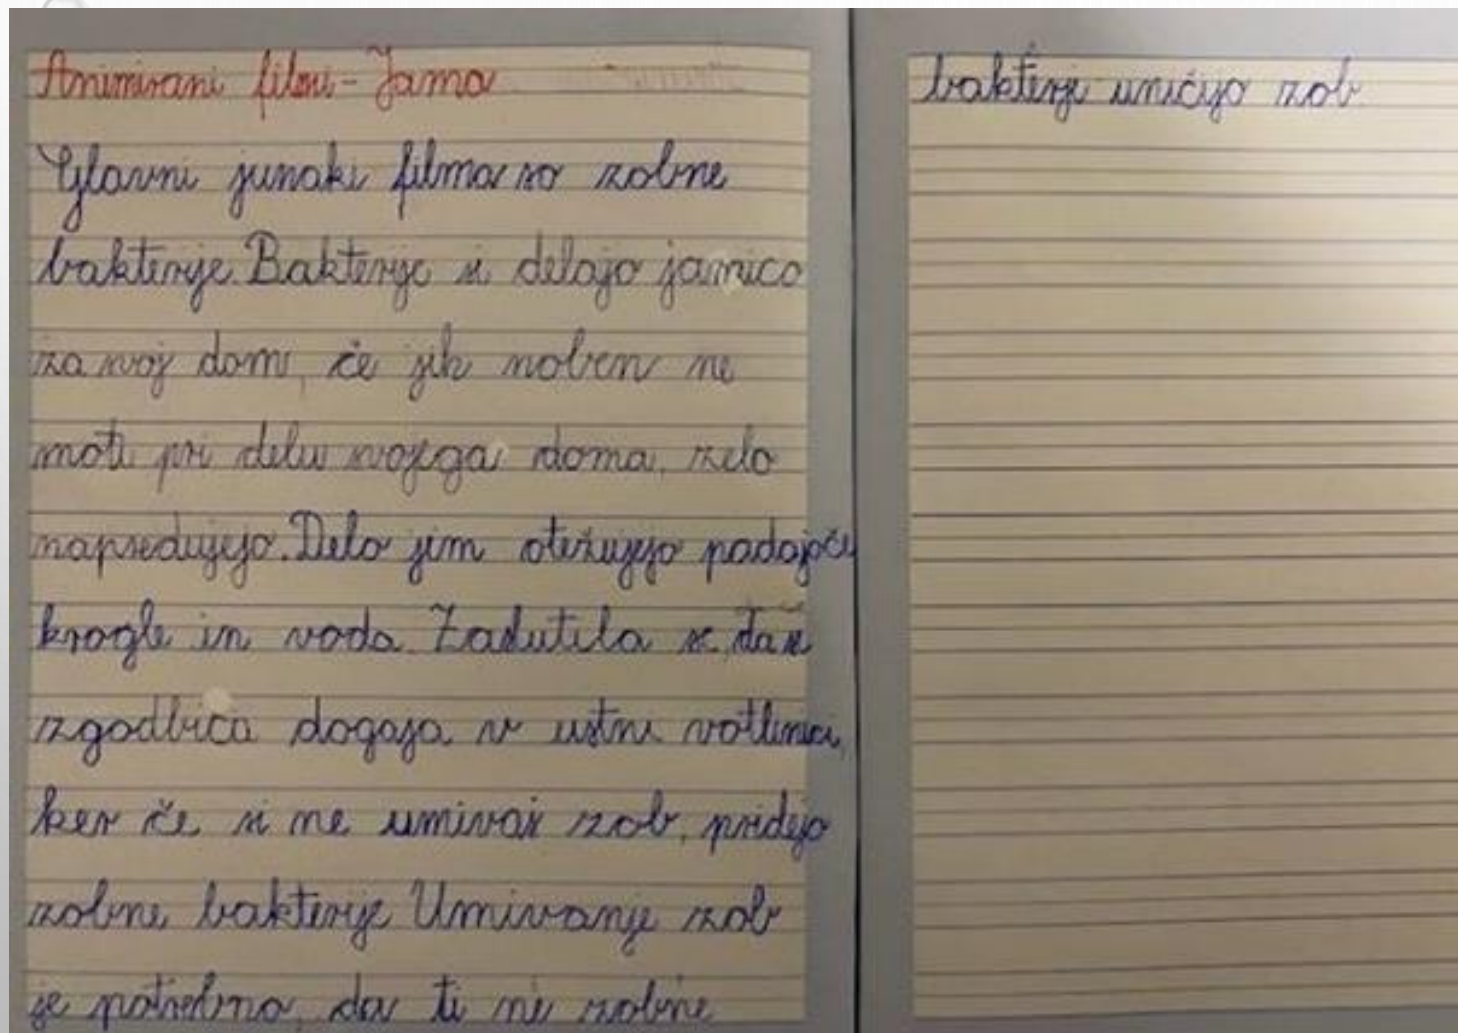 Animirani film - Jama
Glavni junaki filma so zobne
bakterije. Bakterije si delajo jamico
za svoj dom, če jih noben ne
moti pri delu svojega doma, zelo
napredujejo. Delo jim otežujejo padajoče
krogle in voda. Začutila se, da se
zgodbica dogaja v ustni votlini,
ker če si ne umivaš zob, pridejo
zobne bakterije. Umivanje zob
je potrebno, da ti ne zobne
bakterije uničijo zob.